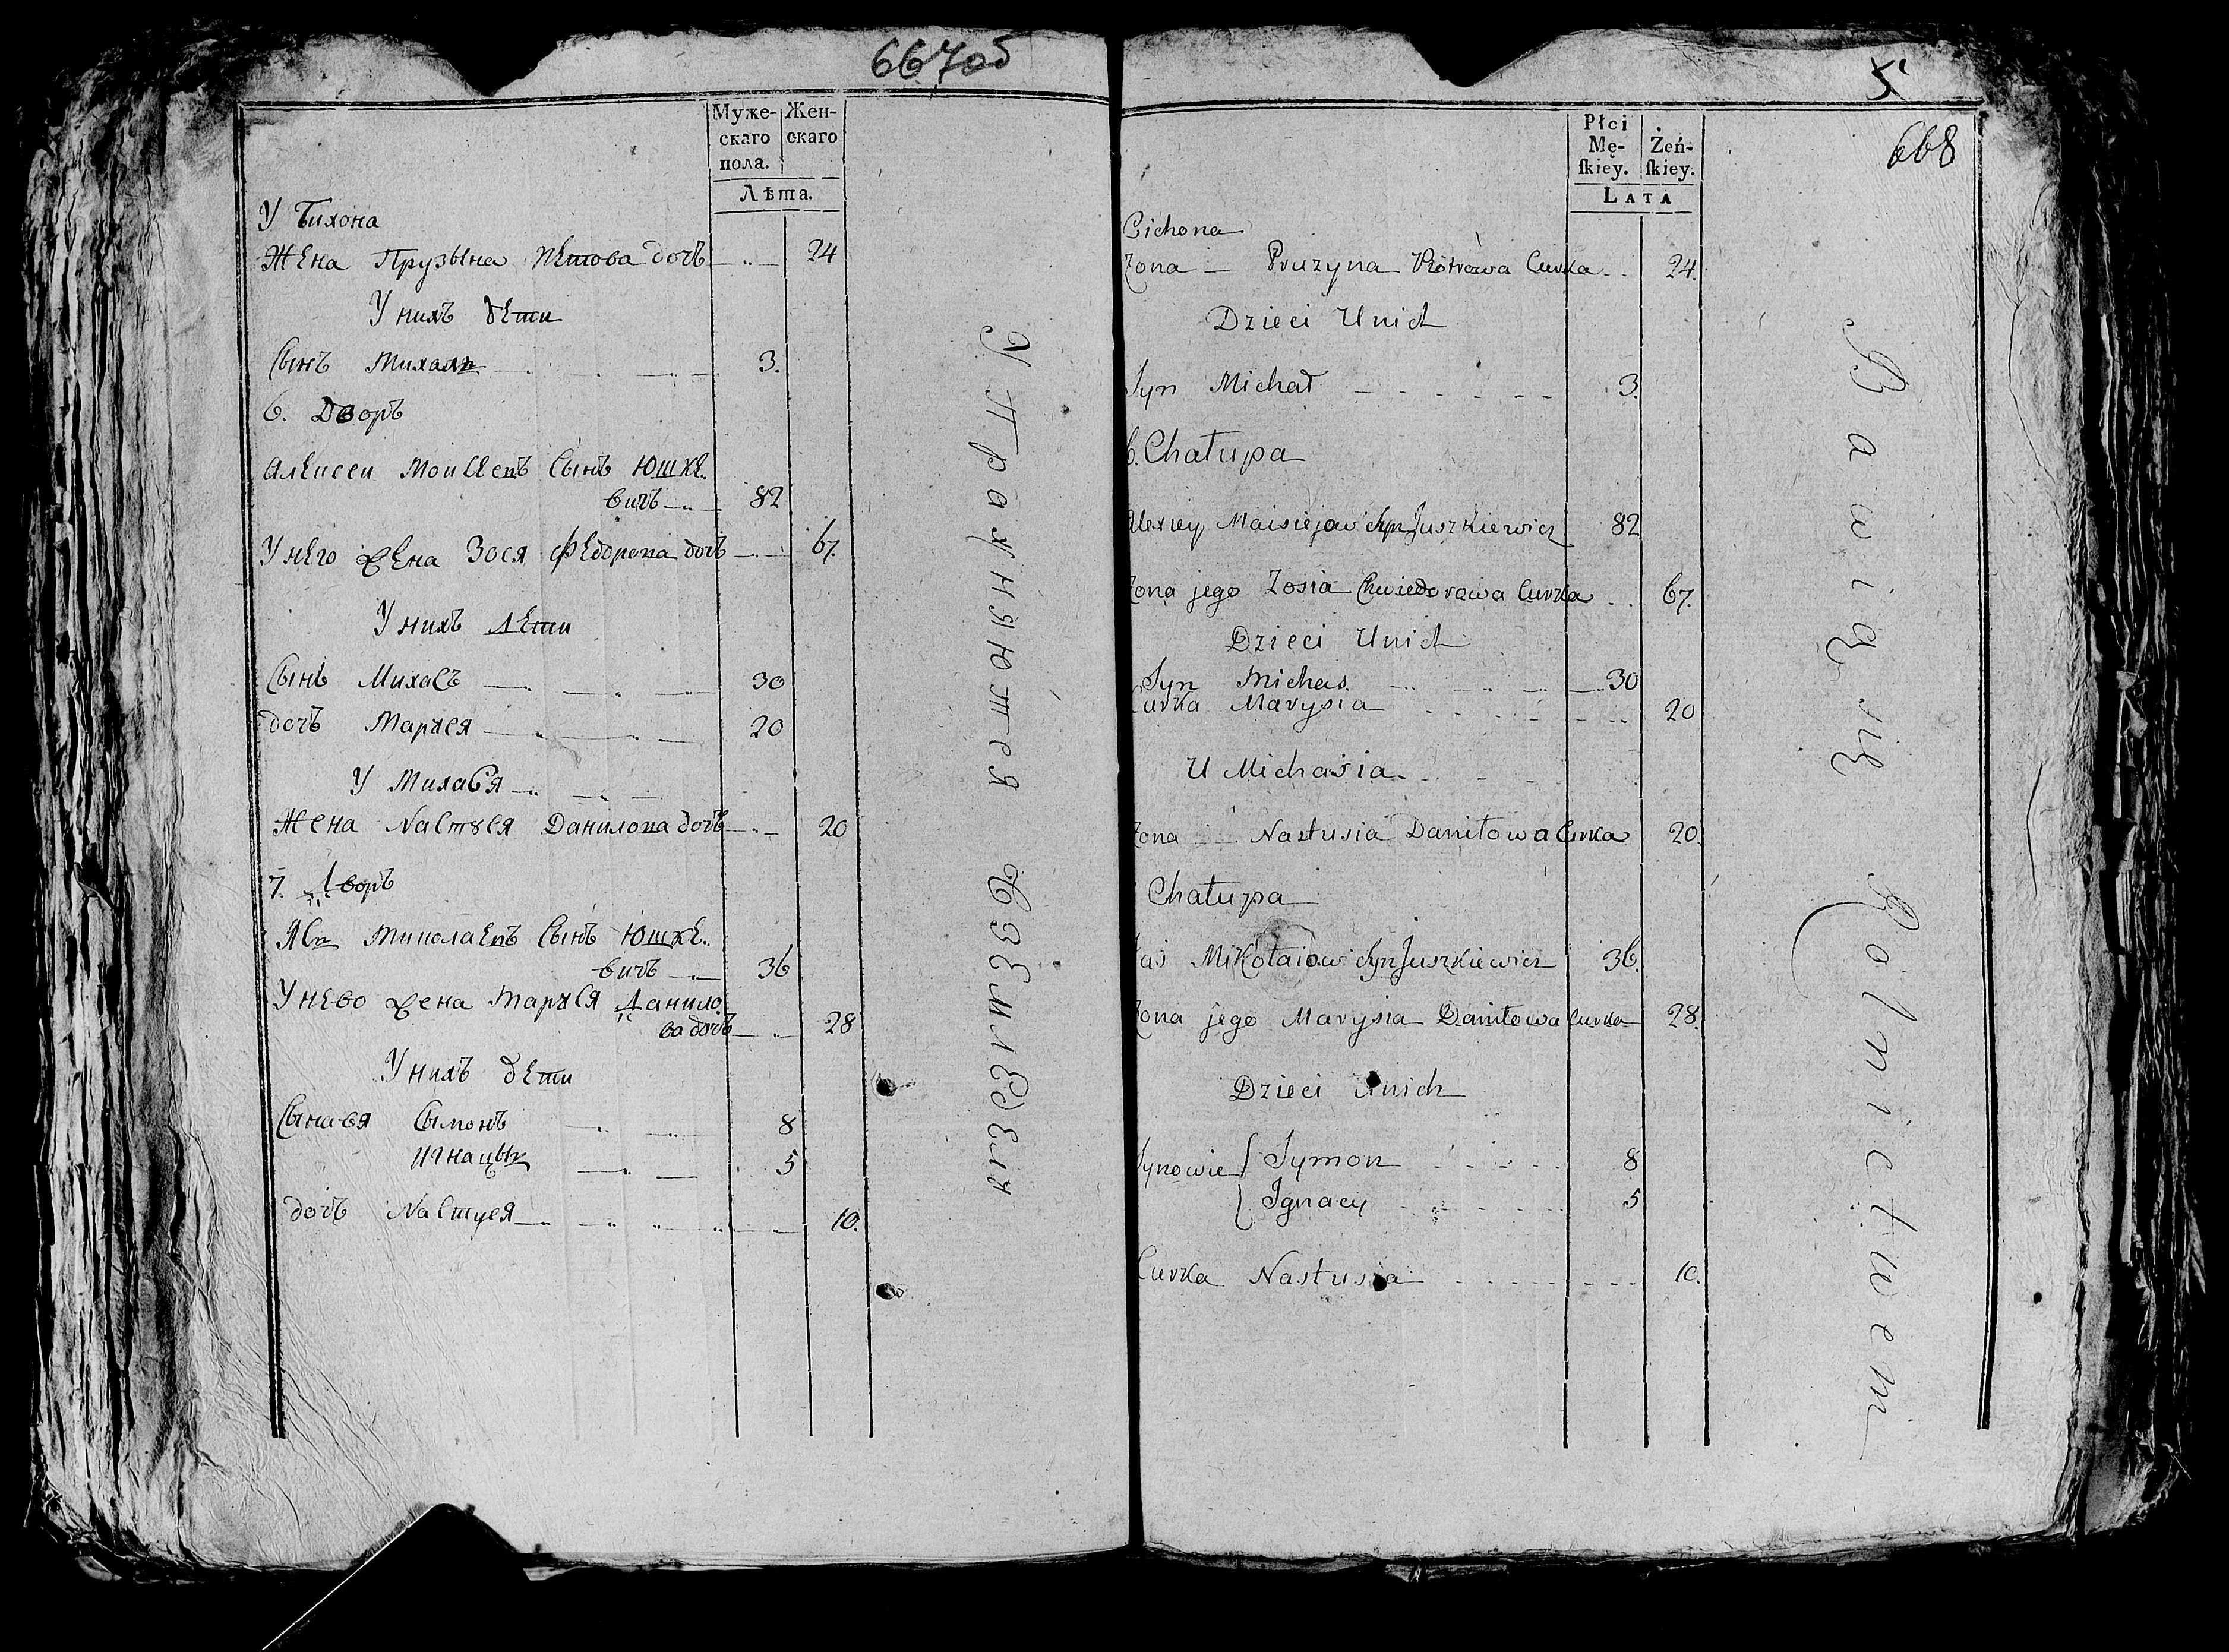 667об
Муже-
скаго
пола.
Жен-
скаго
Лѣта.
У Тихона
Жена Прузына Петрова дочь 24
У нихъ дети
Сынъ Михалъ 3.
6. Дворъ
Алексеи Моисеевъ Сынъ Юшке-
вичъ 82
У него жена Зося Федорова дочь 67.
У нихъ дети
Сынъ Михась 30
дочь Маруся 20
У Михася
Жена Настуся Данилова дочь 20
7. Дворъ
Ясь Миколаевъ Сынъ Юшке-
вичъ 36
У нево жена Маруся Данило-
ва дочь 28
У нихъ дети
Сыновя Сымонъ 8
Игнацы 5
дочь Настуся 10.
Упражняются
Земледели
5
668
Płci
Mę-
ſkiey.
Żeń-
ſkiey.
LATA
Cichona
Żona Pruzyna Piotrowa Curka 24.
Dzieci Unich
Syn Michał 3.
6. Chałupa
Alexiey Maisiejow Syn Juszkiewicz 82
Żona jego Zosia Chwiedorowa Curka 67.
Dzieci Unich
Syn Michas 30
Curka Marysia 20
U Michasia
Żona Nastusia Daniłowa Curka 20.
Chałupa
Jaś Mikołaiow Syn Juszkiewicz 36.
Żona jego Marysia Daniłowa Curka 28.
Dzieci Unich
Synowie Symon 8
Ignacy 5
Curka Nastusia 10.
Bawią się Rolnictwem